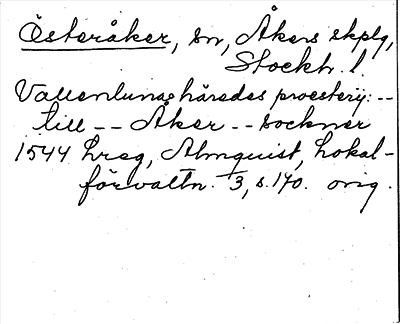 Österåker, sn, Åkers skplg,
Stockh. l.
Vallenluna härades proesterij: --
till -- Åker -- sockner
1544 hreg, Almquist, Lokal-
förvaltn. 1/3, s. 140. orig.